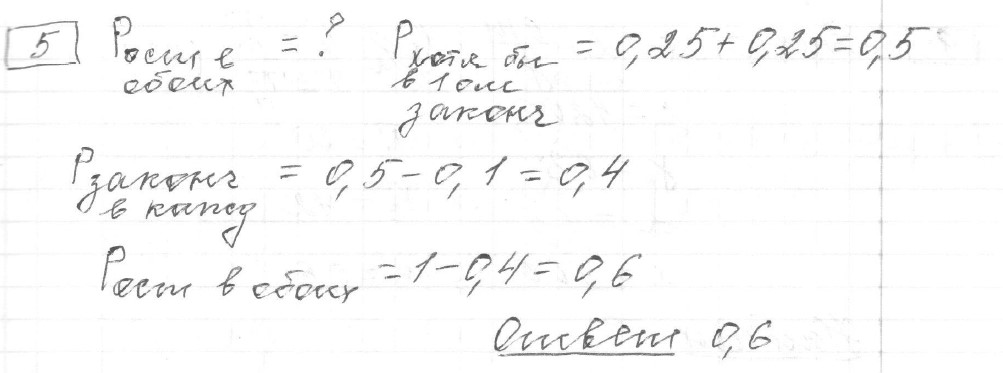 5 P ост в обоих = ? P хотя бы в 1 ом законч = 0,25 + 0,25 = 0,5
P законч в кажд = 0,5 - 0,1 = 0,4
P ост в обоих = 1 - 0,4 = 0,6
Ответ 0,6